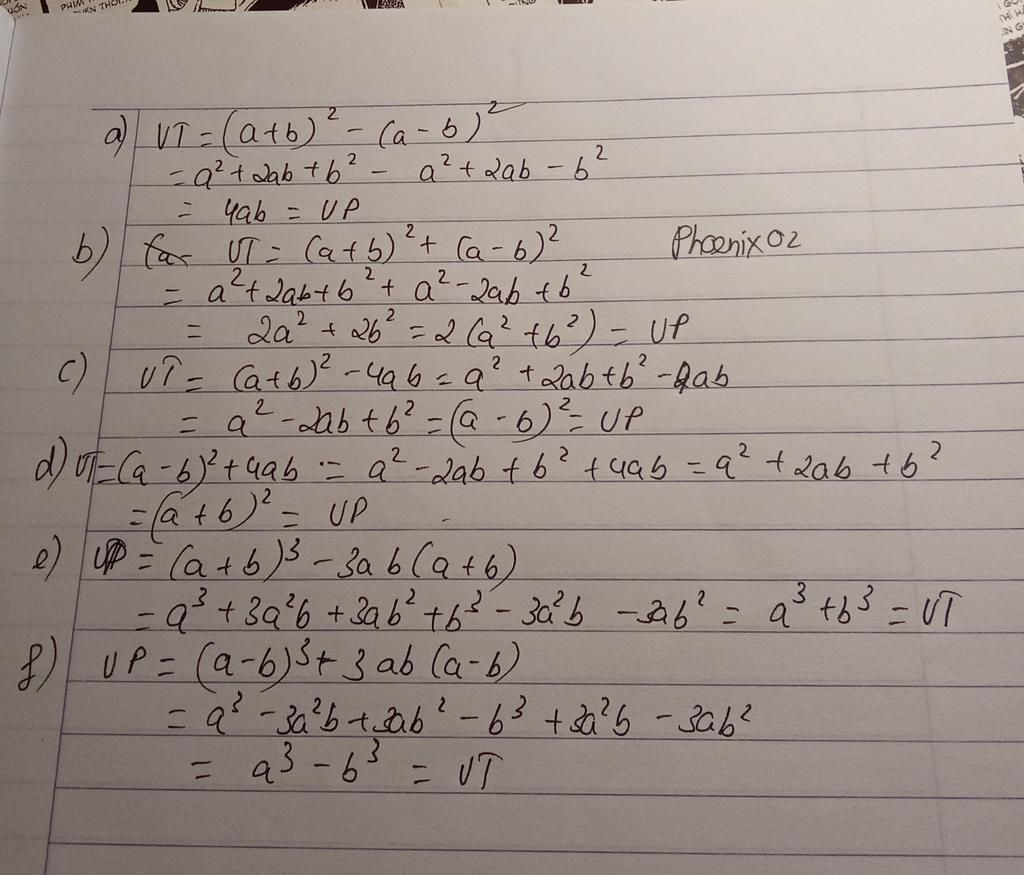 UỐN
PHIM
THỜI...
a) VT = (a+b)² - (a-b)²
= a² + 2ab + b² - a² + 2ab - b²
= 4ab = VP
b) VT = (a+b)² + (a-b)²
Phoenix02
= a² + 2ab + b² + a² - 2ab + b²
= 2a² + 2b² = 2(a² + b²) = VP
c) VT = (a+b)² - 4ab = a² + 2ab + b² - 4ab
= a² - 2ab + b² = (a-b)² = VP
d) VT = (a-b)² + 4ab = a² - 2ab + b² + 4ab = a² + 2ab + b²
= (a+b)² = VP
e) VP = (a+b)³ - 3ab(a+b)
= a³ + 3a²b + 3ab² + b³ - 3a²b - 3ab² = a³ + b³ = VT
f) VP = (a-b)³ + 3ab(a-b)
= a³ - 3a²b + 3ab² - b³ + 3a²b - 3ab²
= a³ - b³ = VT